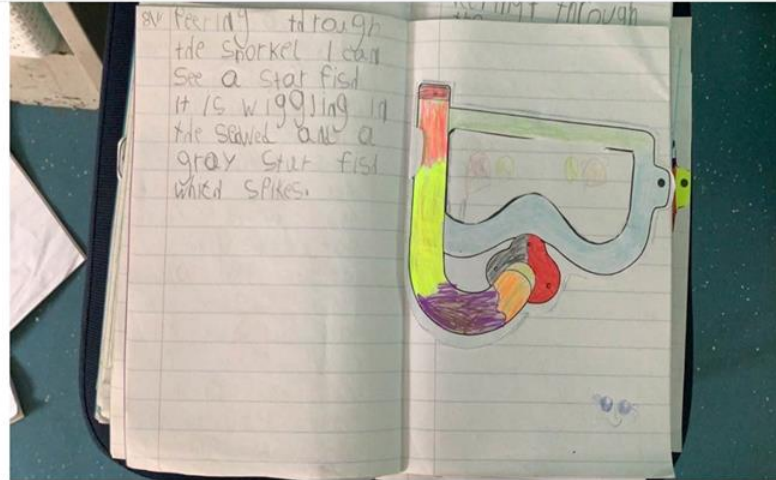 Peering through
the snorkel I can
See a star fish
it is wiggling in
the seawed and a
gray star fish
which spikes.
through